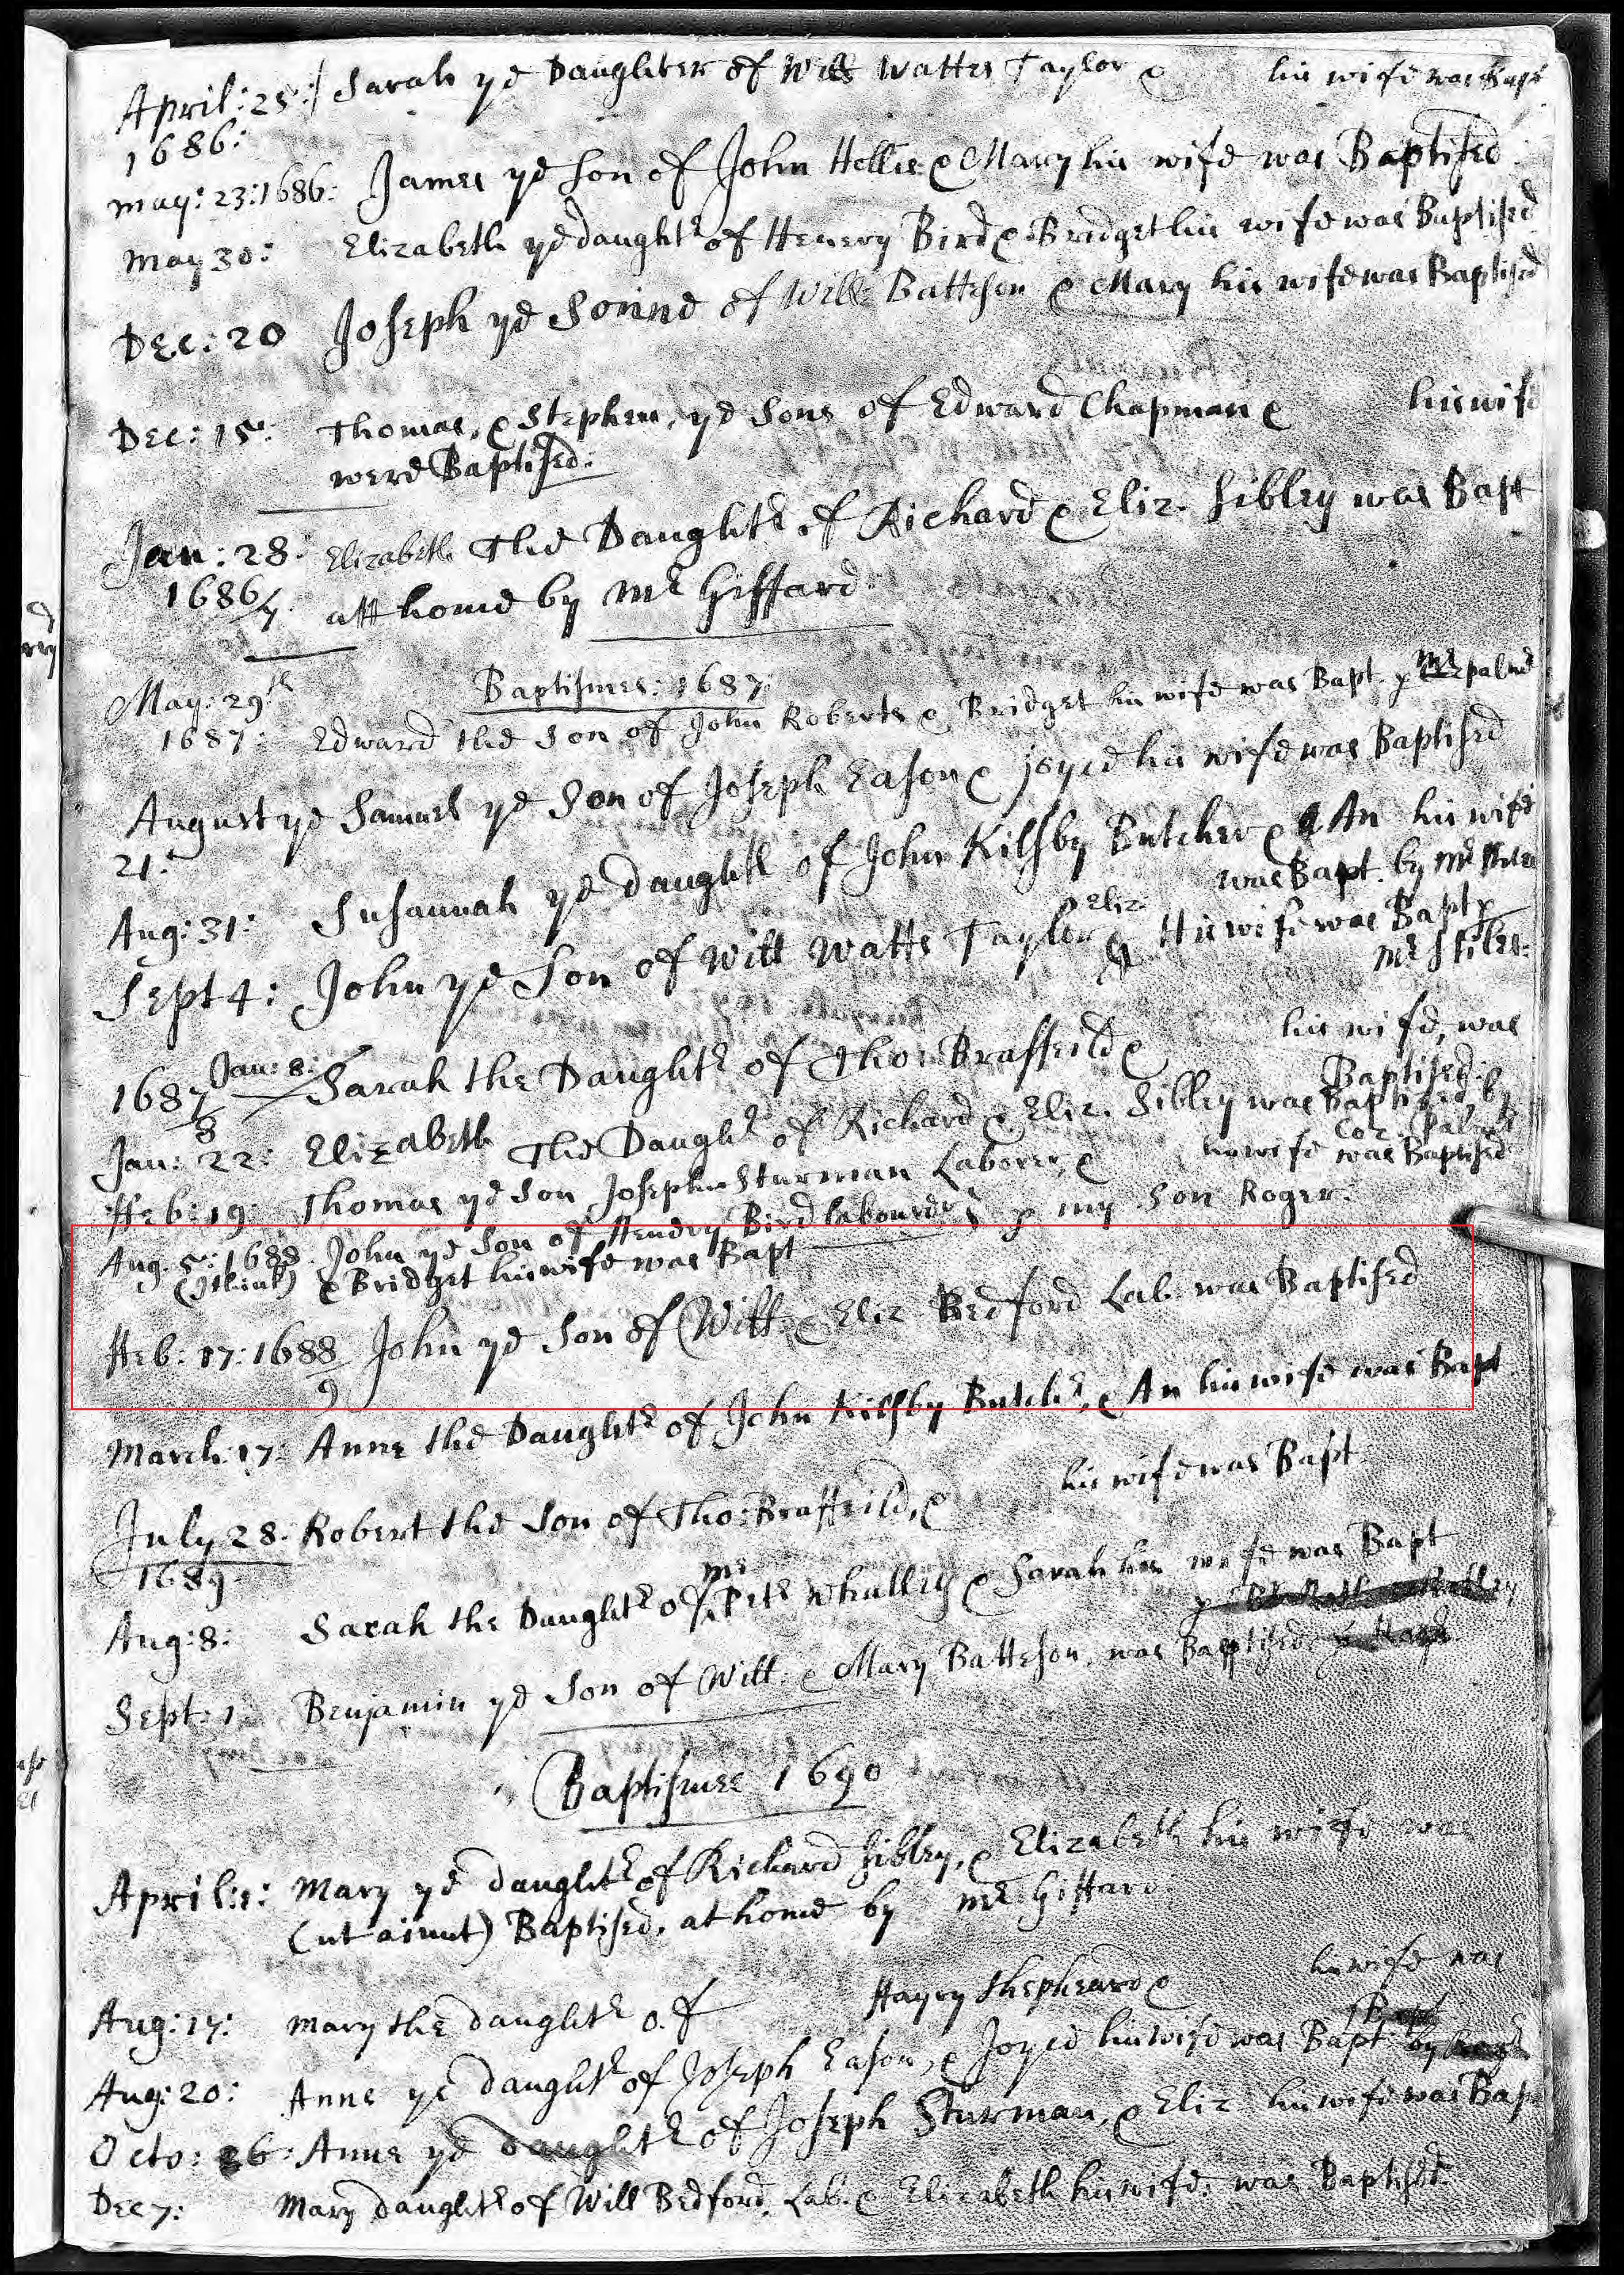 April: 25: / Sarah ye Daughter of Will Wattes Taylor & his wife was Bapt
1686:
may: 23: 1686: James ye Son of John Hollis & Mary his wife was Baptised
May 30: Elizabeth ye daught.r of Henery Bird & Bridget his wife was Baptised
Dec: 20 Joseph ye Sonne of Will: Batteson & Mary his wife was Baptised
Dec: 15: Thomas, & Stephen, ye Sons of Edward Chapman & his wife
were Baptised:
Jan: 28: Elizabeth The Daught.r of Richard & Eliz. Sibley was Bapt
1686/7. att home by Mr Giffard:
Baptismes: 1687:
May: 29th
1687: Edward the Son of John Roberts & Bridget his wife was Bapt. p Mr palmer
August ye Samuel ye Son of Joseph Eason & joyce his wife was Baptised
21:
Aug: 31: Susannah ye daught.r of John Kilsby Butcher & An his wife
was Bapt. by Mr
Sept 4: John ye Son of Will Watts Taylor & Eliz: His wife was Bapt p
Mr Stiles:
1687/8 Jan: 8: Sarah the Daught.r of Tho: Braffeild & his wife, was
Baptised:
Jan: 22: Elizabeth The Daught.r of Richard & Eliz. Sibley was Baptized by
Feb: 19: Thomas ye Son Joseph Sturman Laborer, & his wife was Baptised
p my Son Roger:
Aug. 5: 1688. John ye Son of Hendry Bird labourer
(I think) & Bridget his wife was Bapt
Feb: 17: 1688/9 John ye Son of Will. & Eliz Bedford Lab. was Baptised
March: 17: Anne the Daught.r of John Kilsby Butch.r, & An his wife was Bapt
July 28. Robert the Son of Tho: Braffeild, & his wife was Bapt.
1689
Aug: 8: Sarah the Daught.r of Mr Pet.r Whalley & Sarah his wife was Bapt
Sept: 1: Benjamin ye Son of Will. & Mary Batteson, was Baptised
Baptismes 1690
April: 1: Mary ye daught.r of Richard Sibley, & Elizabeth his wife was
(ut aiunt) Baptised, at home by Mr Giffard:
Aug: 17: mary the daught.r of Harry Shepheard & his wife was
Bapt
Aug: 20: Anne ye daught.r of Joseph Eason, & Joyce his wife was Bapt. by
Octo: 26: Anne ye daught.r of Joseph Sturman, & Eliz: his wife was Bap
Dec 7: Mary daught.r of Will Bedford, Lab. & Elizabeth his wife: was Baptised.